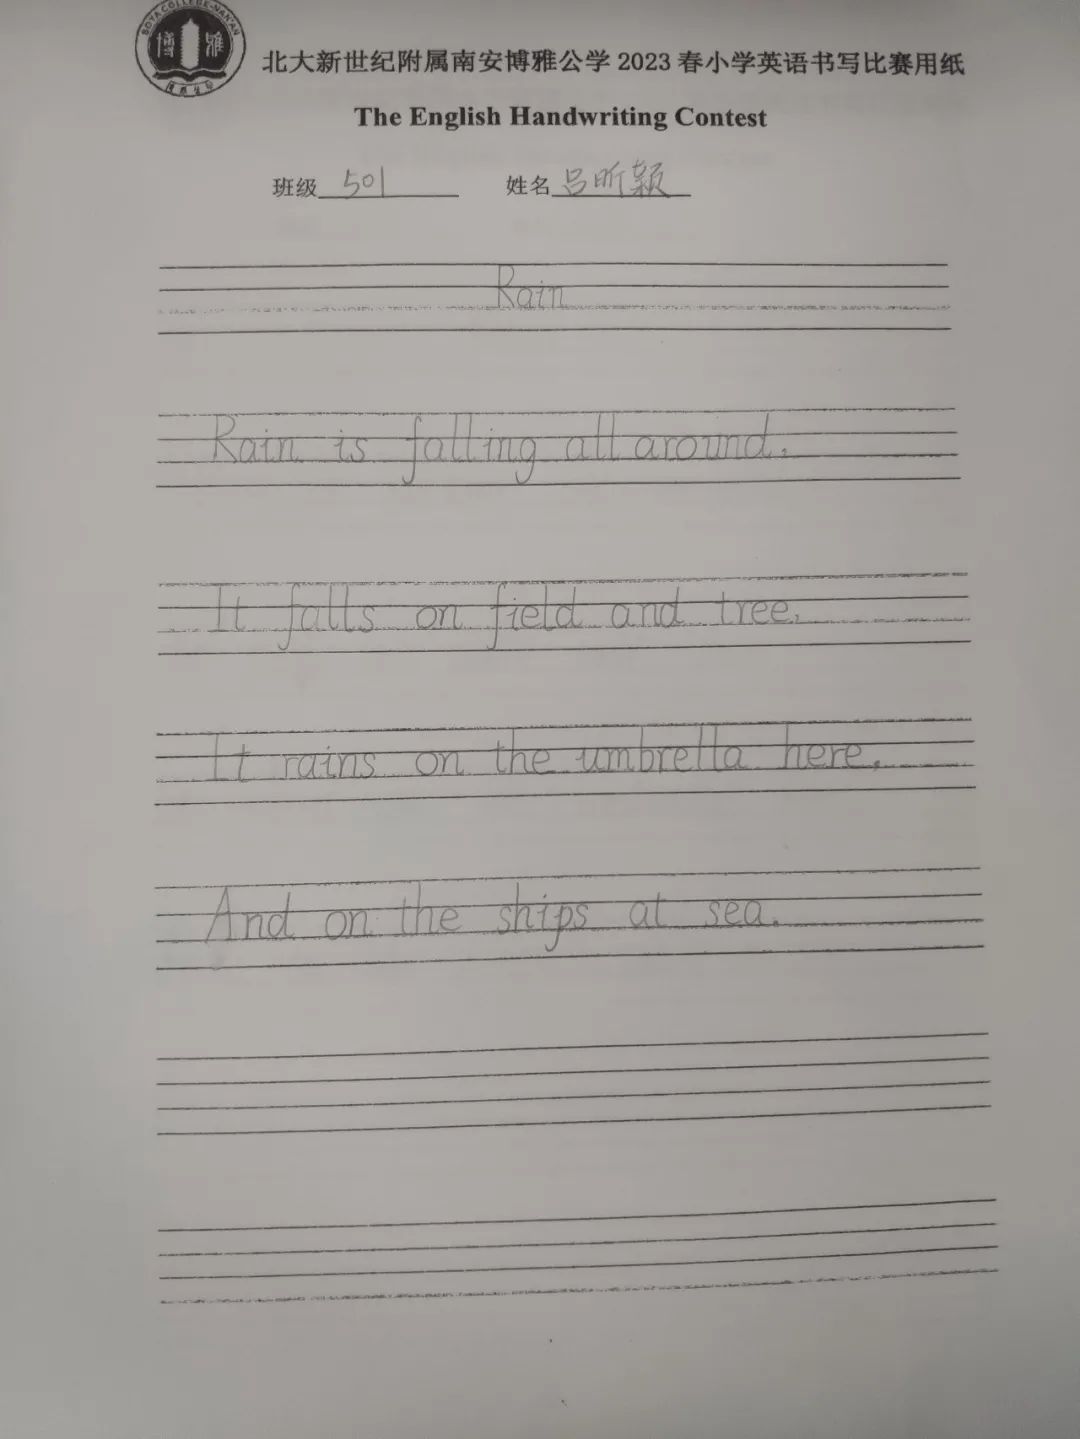 BOYA COLLEGE-NAN'AN
博雅
北大新世纪附属南安博雅公学 2023 春小学英语书写比赛用纸
The English Handwriting Contest
班级 501 姓名 吕昕颖
Rain
Rain is falling all around,
It falls on field and tree,
It rains on the umbrella here,
And on the ships at sea.